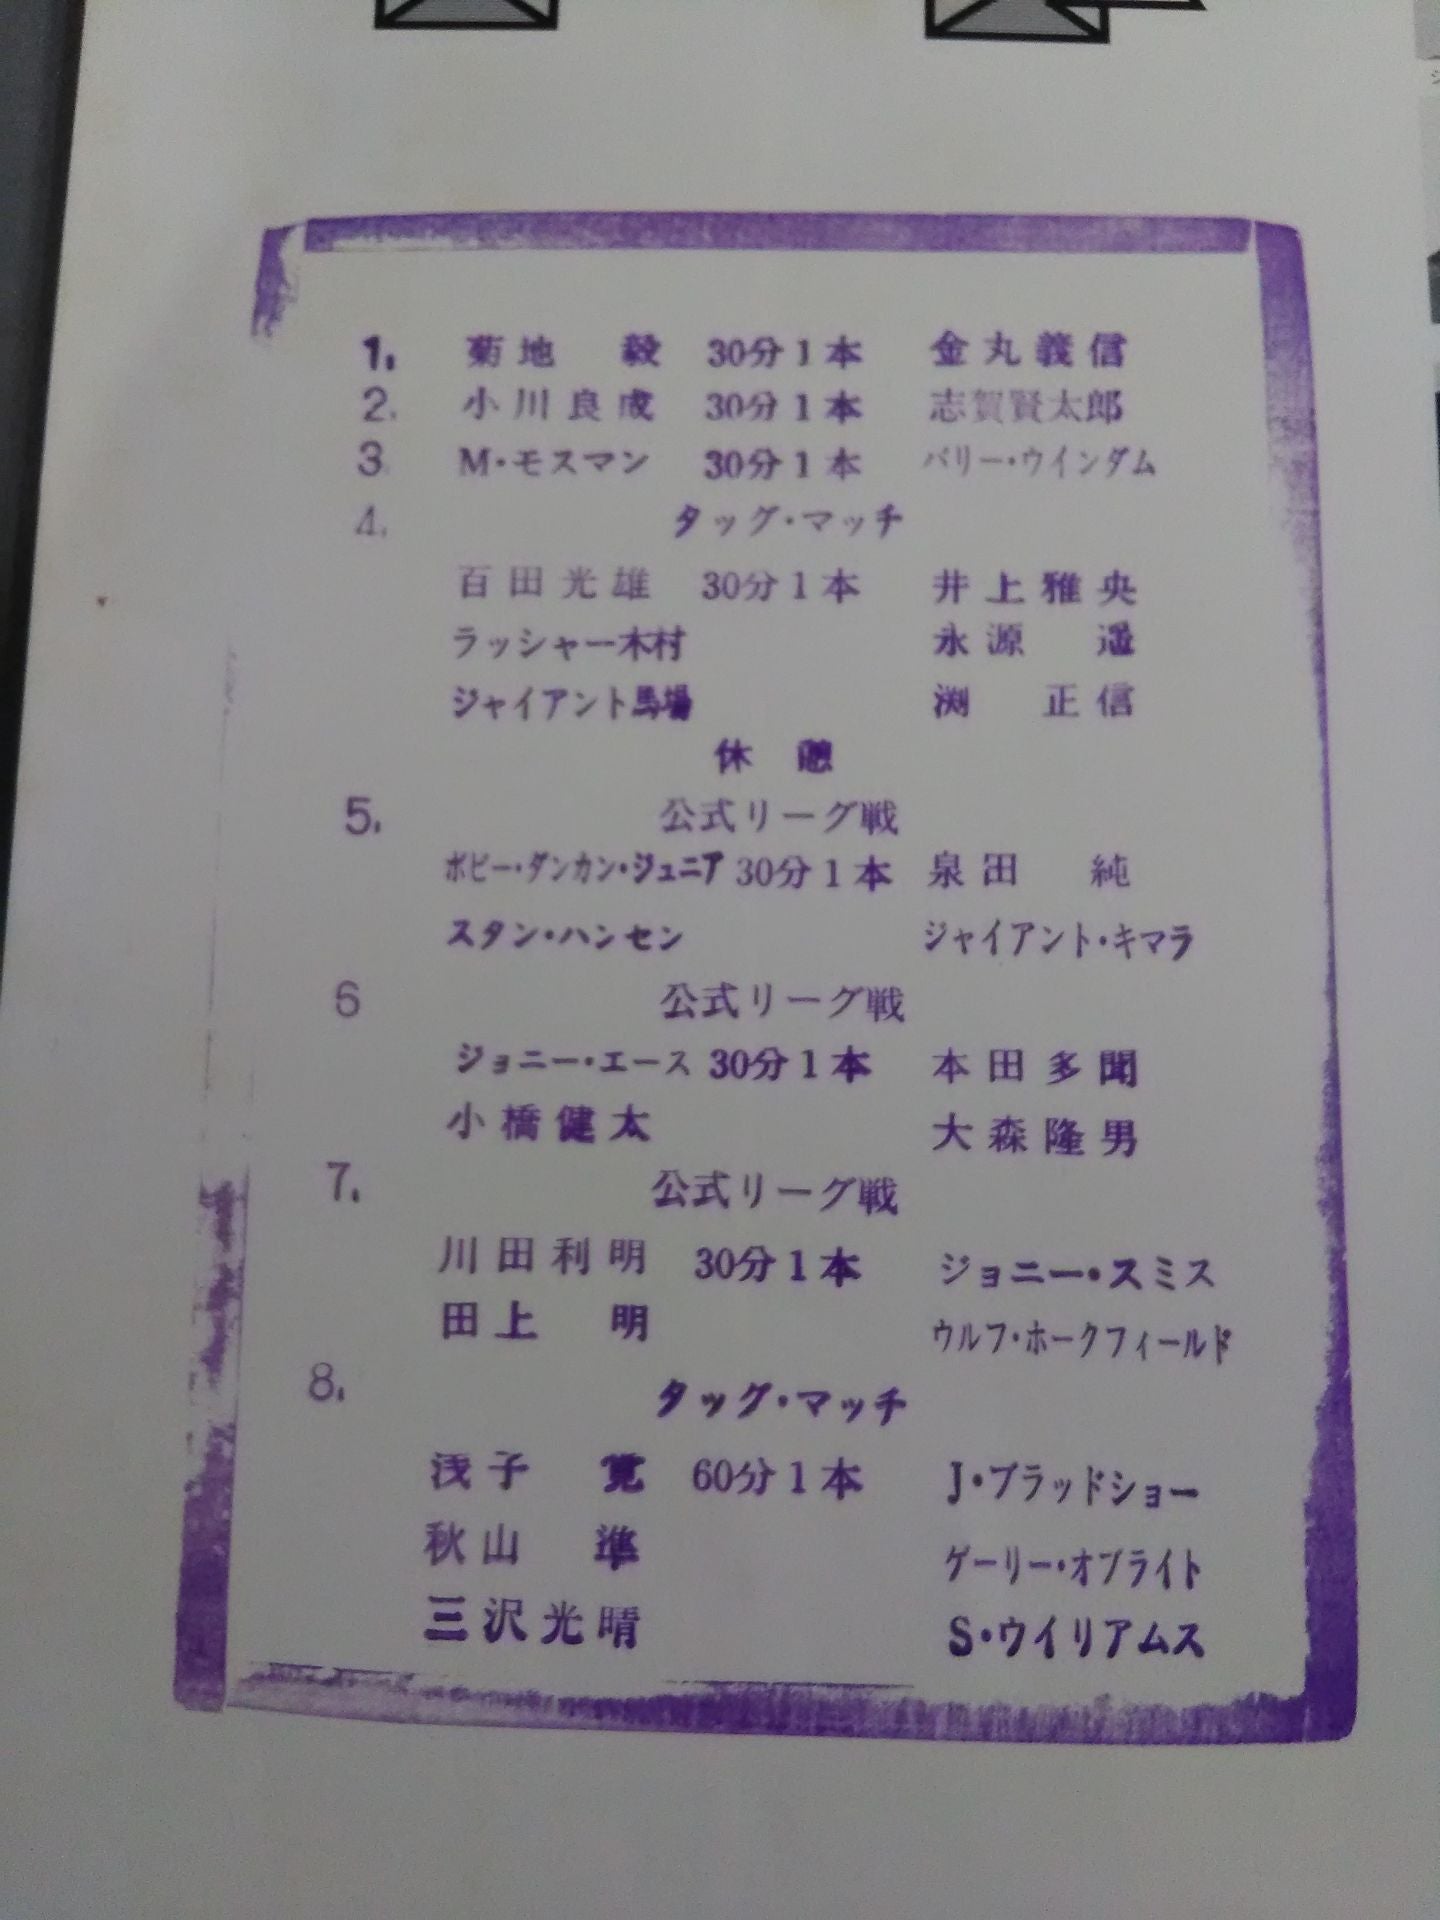 1. 菊地 毅 30分1本 金丸義信
2. 小川良成 30分1本 志賀賢太郎
3 M・モスマン 30分1本 バリー・ウインダム
4. タッグ・マッチ
百田光雄 30分1本 井上雅央
ラッシャー木村 永源 遥
ジャイアント馬場 渕 正信
休憩
5. 公式リーグ戦
ボビー・ダンカン・ジュニア 30分1本 泉田 純
スタン・ハンセン ジャイアント・キマラ
6 公式リーグ戦
ジョニー・エース 30分1本 本田多聞
小橋健太 大森隆男
7. 公式リーグ戦
川田利明 30分1本 ジョニー・スミス
田上 明 ウルフ・ホークフィールド
8. タッグ・マッチ
浅子 覚 60分1本 J・ブラッドショー
秋山 準 ゲーリー・オブライト
三沢光晴 S・ウイリアムス